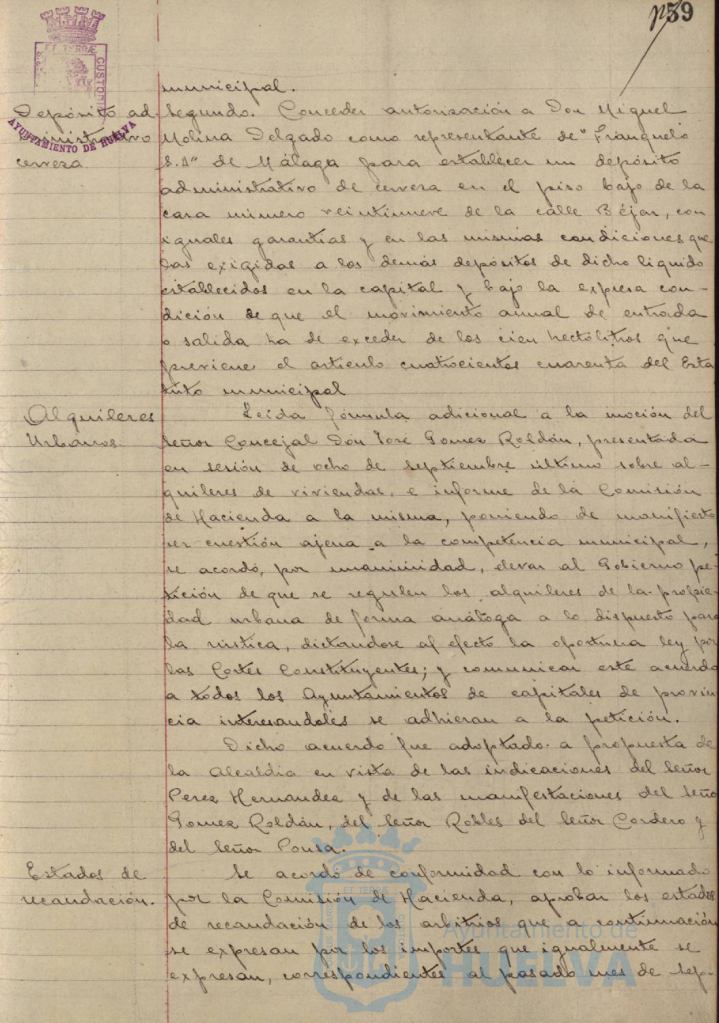 139
ET TERRÆ
CUSTODIA
AYUNTAMIENTO DE HUELVA
municipal.
Depósito ad-
ministrativo
cerveza
Segundo. Conceder autorización a Don Miguel
Molina Delgado como representante de "Franquelo
S.A" de Málaga para establecer un depósito
administrativo de cerveza en el piso bajo de la
casa número veintinueve de la calle Béjar, con
iguales garantías y en las mismas condiciones que
las exigidas a los demás depósitos de dicho líquido
establecidos en la capital y bajo la expresa con-
dición de que el movimiento anual de entrada
o salida ha de exceder de los cien hectolitros que
previene el artículo cuatrocientos cuarenta del Esta
tuto municipal
Alquileres
Urbanos.
Leida fórmula adicional a la moción del
Señor Concejal Don José Gomez Roldán, presentada
en sesión de ocho de septiembre último sobre al-
quileres de viviendas, e informe de la Comisión
de Hacienda a la misma, poniendo de manifiesto
ser cuestión ajena a la competencia municipal,
se acordó, por unanimidad, elevar al Gobierno pe-
tición de que se regulen los alquileres de la propie-
dad urbana de forma análoga a lo dispuesto para
la rústica, dictandose al efecto la oportuna ley por
las Cortes Constituyentes; y comunicar este acuerdo
a todos los Ayuntamientos de capitales de provin
cia interesandoles se adhieran a la petición.
Dicho acuerdo fue adoptado a propuesta de
la Alcaldía en vista de las indicaciones del señor
Perez Hernandez y de las manifestaciones del señor
Gomez Roldán, del Señor Robles del Señor Cordero y
del Señor Ponsa.
Estados de
recaudación.
Se acordó de conformidad con lo informado
por la Comisión de Hacienda, aprobar los estados
de recaudación de los arbitrios que a continuación
se expresan por los importes que igualmente se
expresan, correspondientes al pasado mes de sep-
Ayuntamiento de
HUELVA